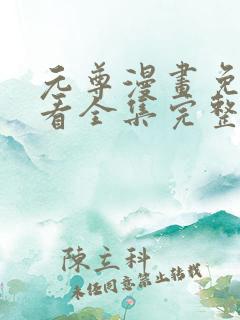 元尊漫畫免
看全集完整
陳立科
未經同意禁止轉載